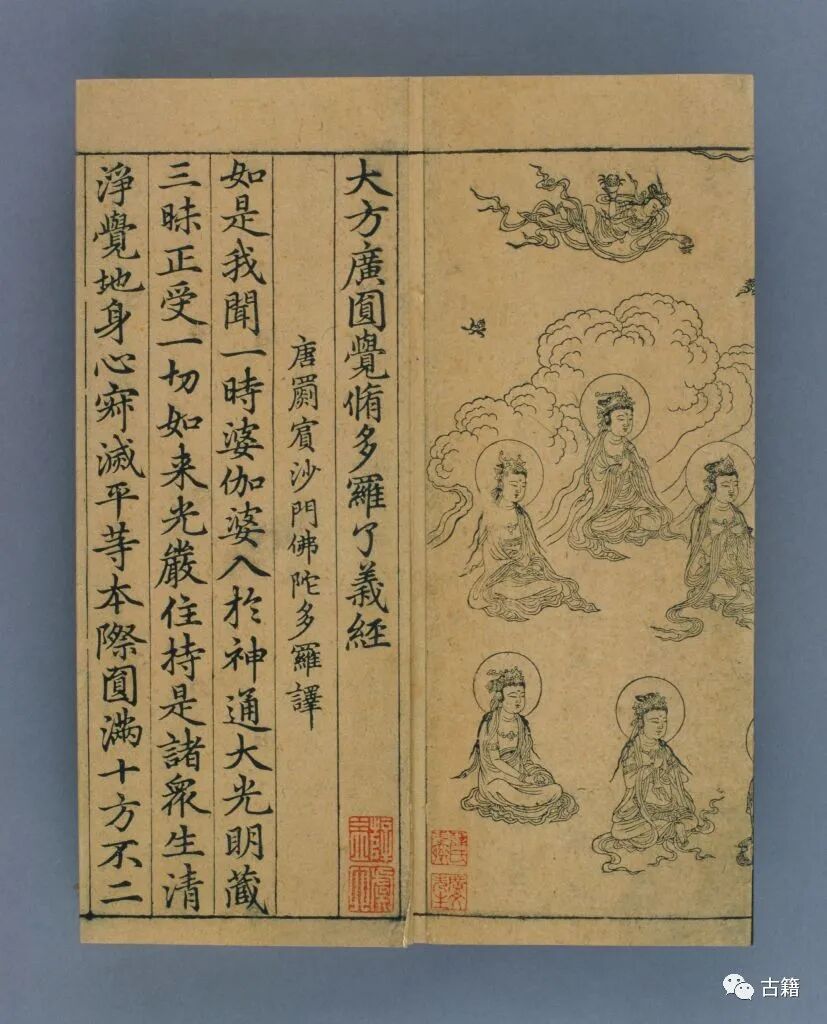 大方廣圓覺脩多羅了義經
唐罽賓沙門佛陀多羅譯
如是我聞一時婆伽婆入於神通大光明藏
三昧正受一切如来光嚴住持是諸衆生清
淨覺地身心寂滅平等本際圓滿十方不二
古籍